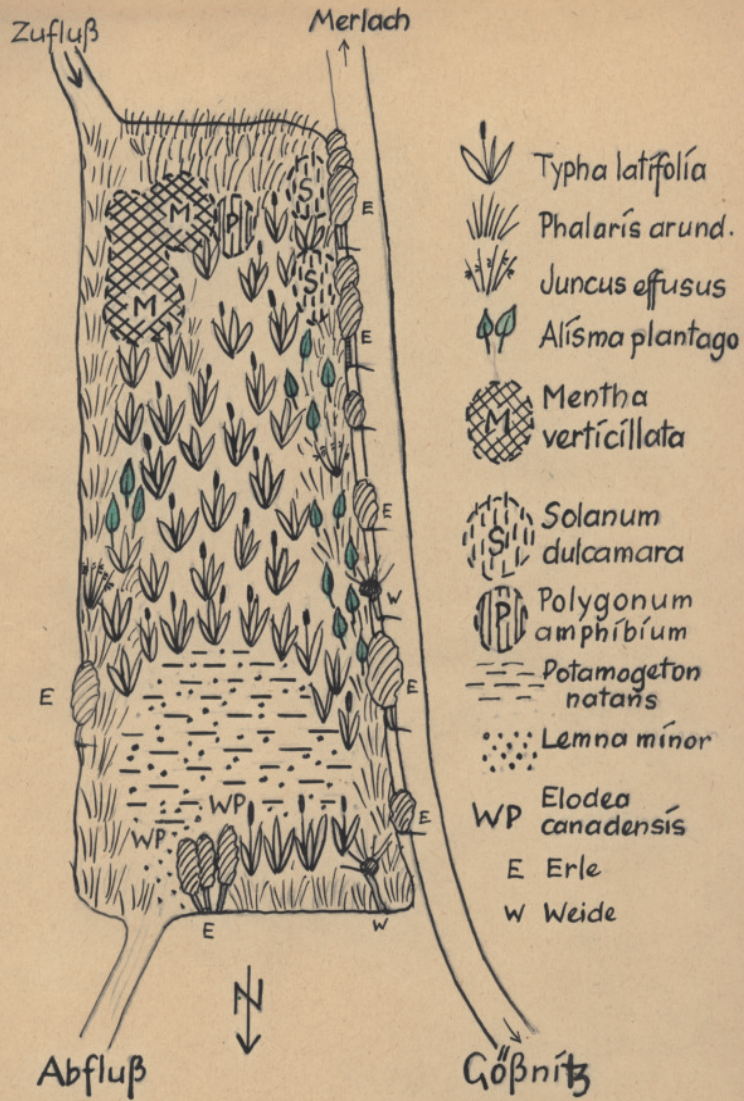 Zufluß
Merlach
S
M
P
E
S
M
E
E
W
E
E
WP
WP
E
E
W
N
Abfluß
Gößnitz
Typha latifolia
Phalaris arund.
Juncus effusus
Alisma plantago
M
Mentha
verticillata
S
Solanum
dulcamara
P
Polygonum
amphibium
Potamogeton
natans
Lemna minor
WP
Elodea
canadensis
E Erle
W Weide